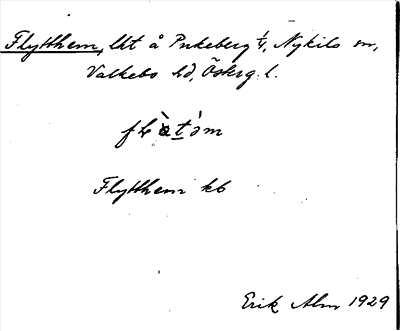 Flytthem, lht å Pukeberg 1/4, Nykils sn,
Valkebo hd, Östrg. l.
Flytthem kb
Erik Alm 1929